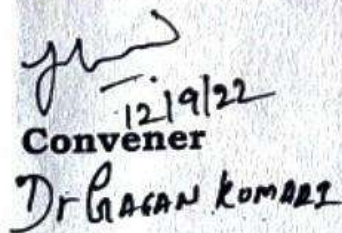 12/9/22
Convener
Dr GAGAN KUMARI